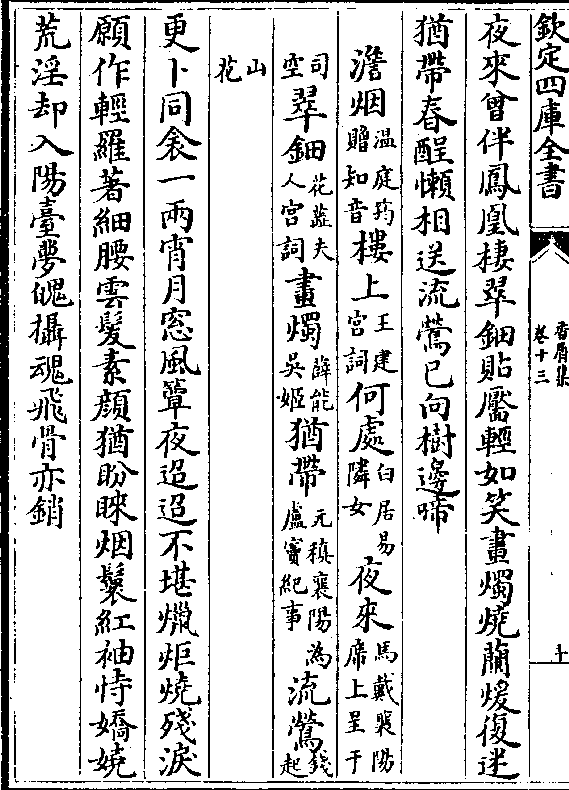 欽定四庫全書
香屑集
卷十三
十
夜來曾伴鳳凰棲翠鈿貼靨輕如笑畫燭燒蘭煖復迷
猶帶春酲懶相送流鶯已向樹邊啼
澹烟溫庭筠贈知音樓上王建宮詞何處白居易隣女夜來馬戴襄陽席上呈于
司空翠鈿花蕊夫人宮詞畫燭薛能吳姬猶帶元稹襄陽為盧竇紀事流鶯錢起
山花
更卜同衾一兩宵月窓風簟夜迢迢不堪爉炬燒殘淚
願作輕羅著細腰雲髮素顔猶盼睞烟鬟紅袖恃嬌嬈
荒淫却入陽臺夢魄攝魂飛骨亦銷